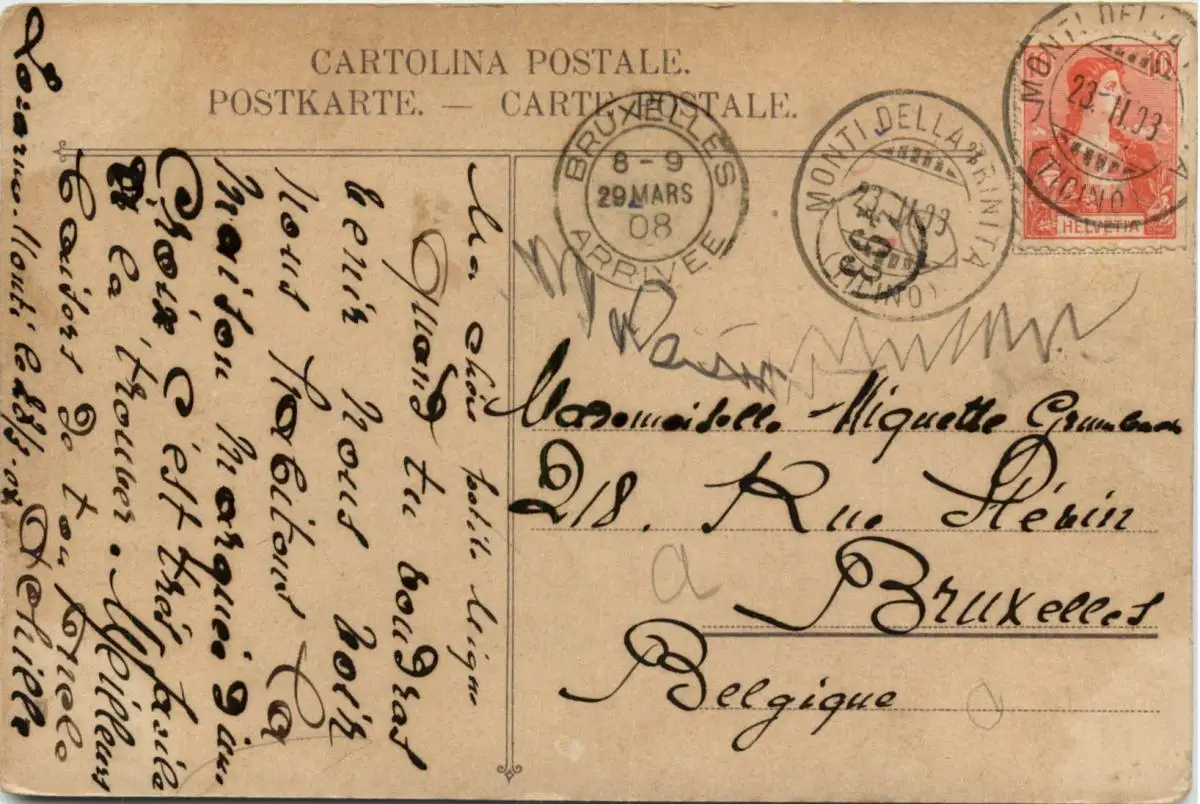 CARTOLINA POSTALE.
POSTKARTE. — CARTE POSTALE.
BRUXELLES
8-9
29 MARS
08
ARRIVÉE
MONTI DELLA TRINITA
(TICINO)
MONTI DELLA
(TICINO)
10
HELVETIA
Ma chère petite Mique
Quand tu voudras
venir nous voir
nous habitons la
maison marquée d'une
Croix c'est très facile
de la trouver. Meilleurs
baisers de ton Oncle
Locarno. Monti le 23/3.08
Mademoiselle Miquette Grumbach
218. Rue Stévin
Bruxelles
Belgique
a